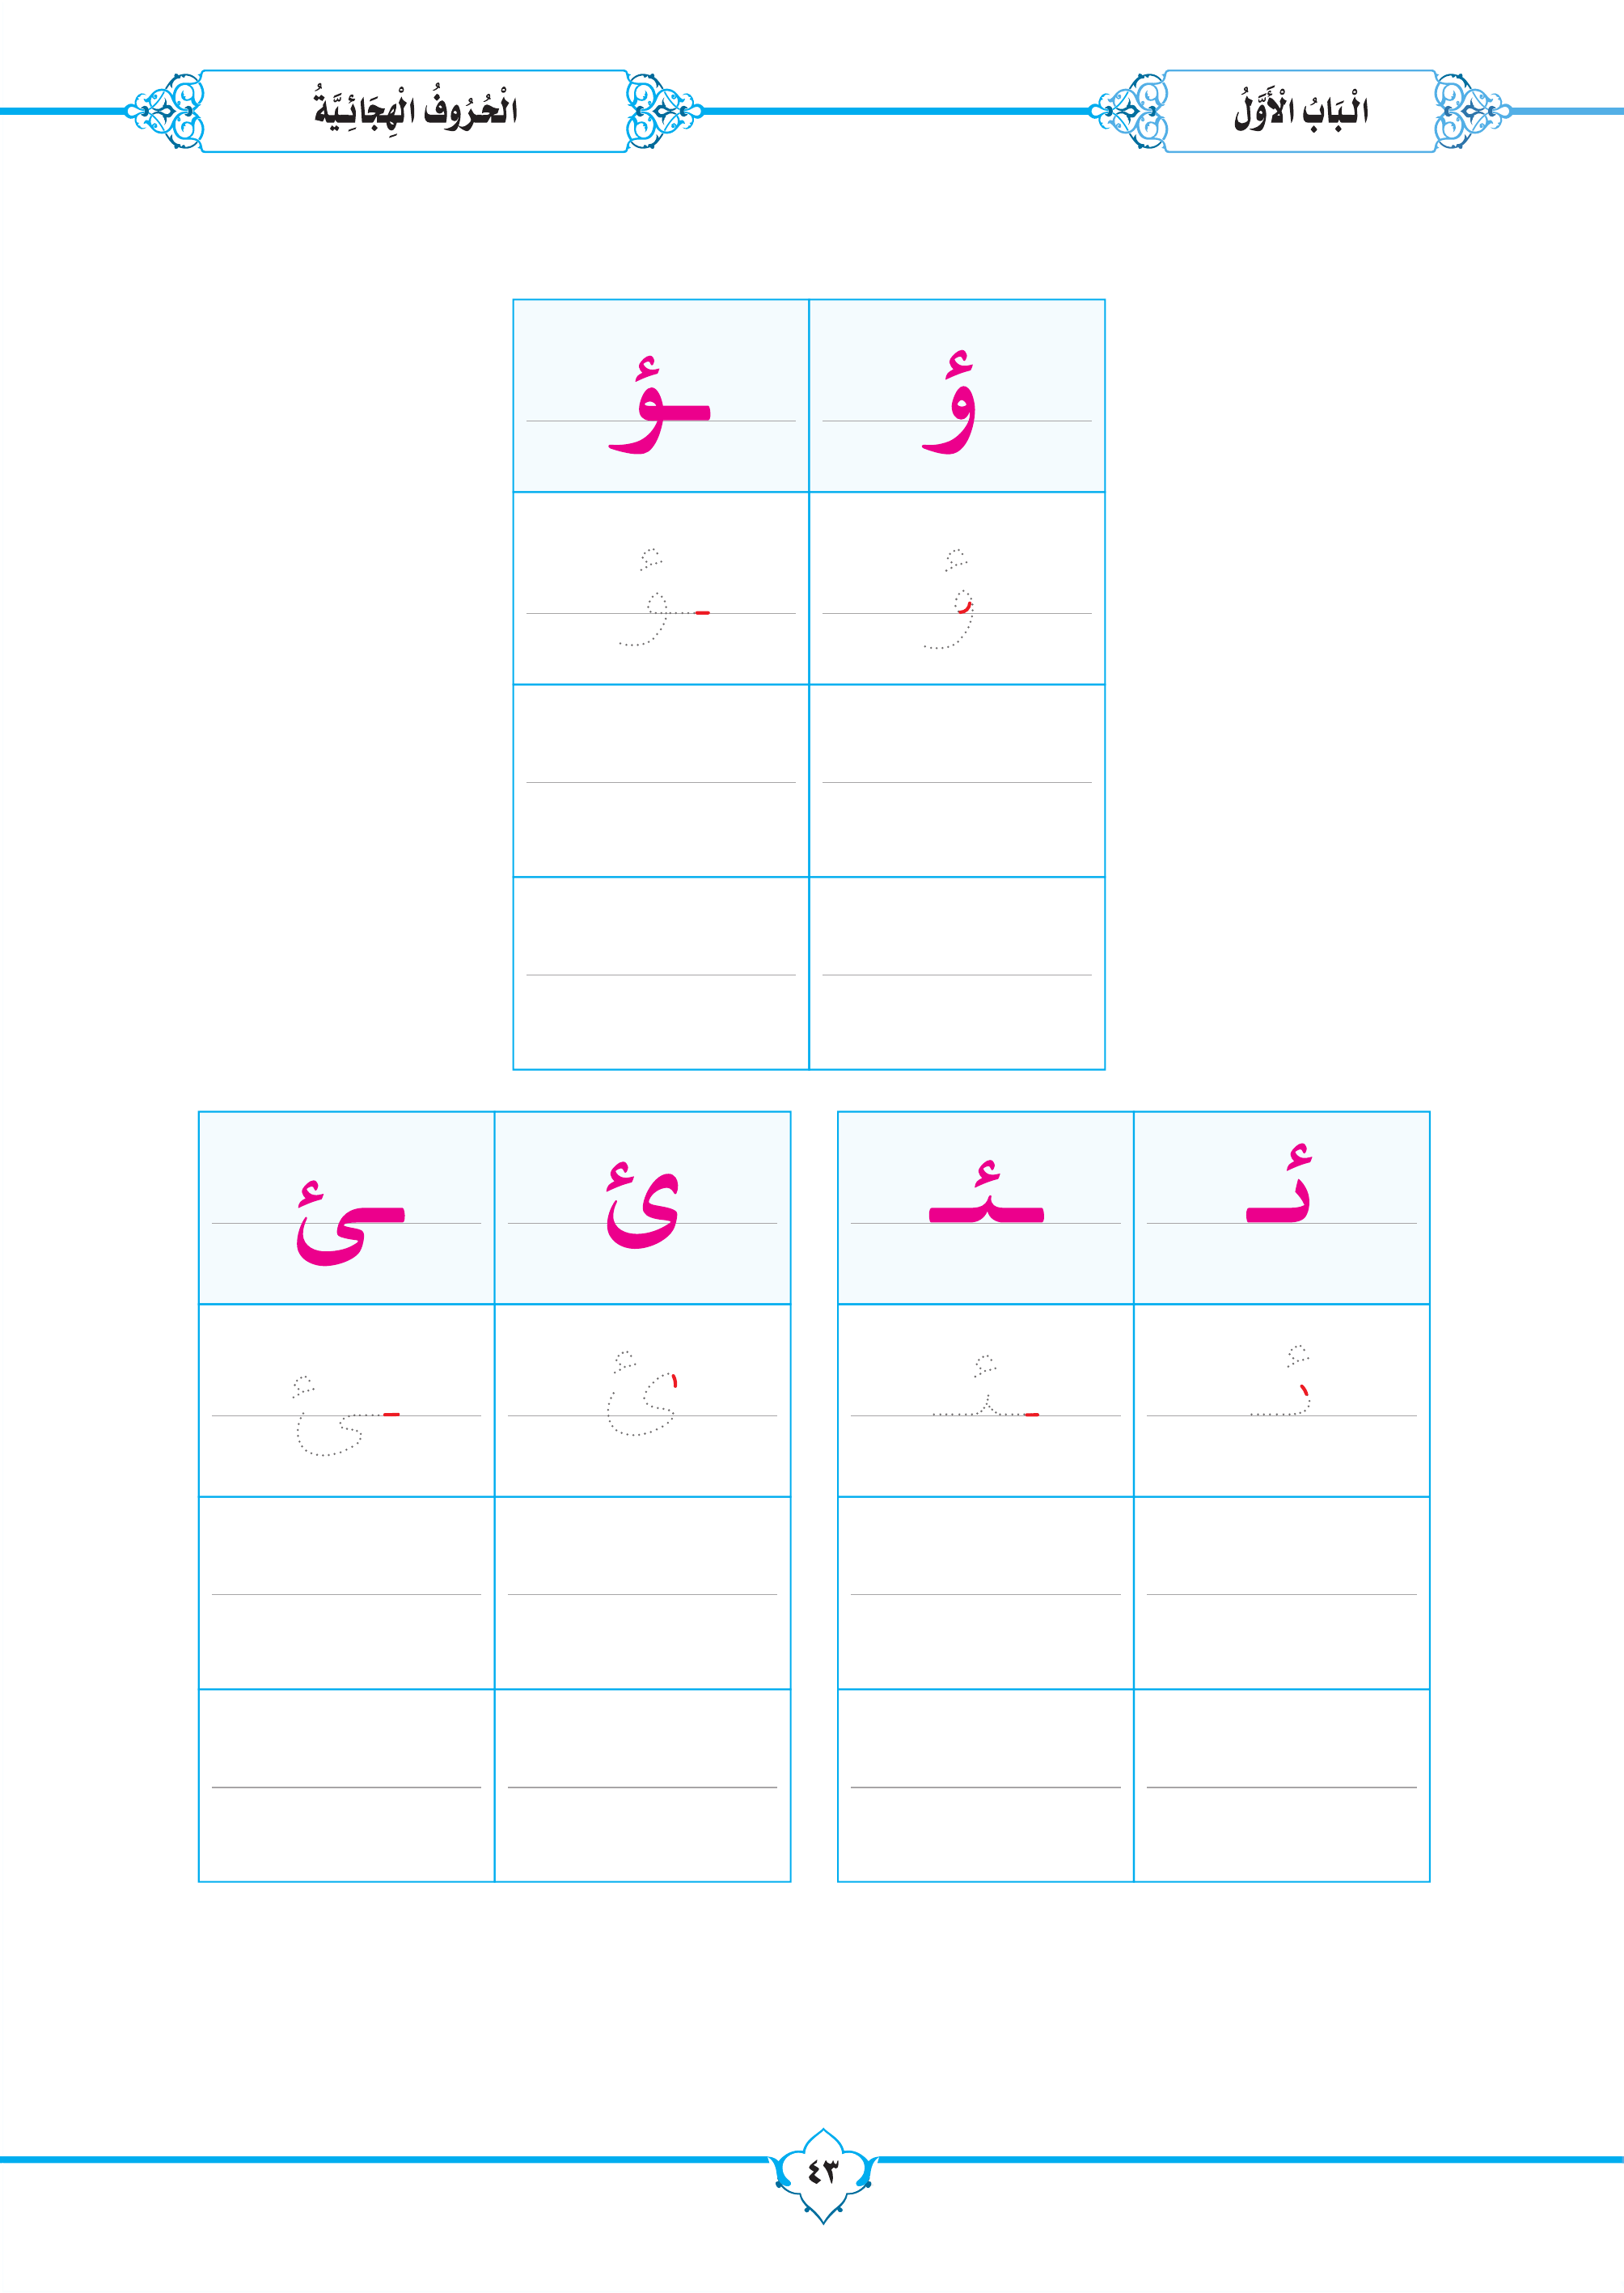 الْبَابُ الْأَوَّلُ
الْحُرُوفُ الْهِجَائِيَّةُ
ؤ ـؤ
ؤ ـؤ
ئـ ـئـ ئ ـئ
ئـ ـئـ ئ ـئ
٤٣